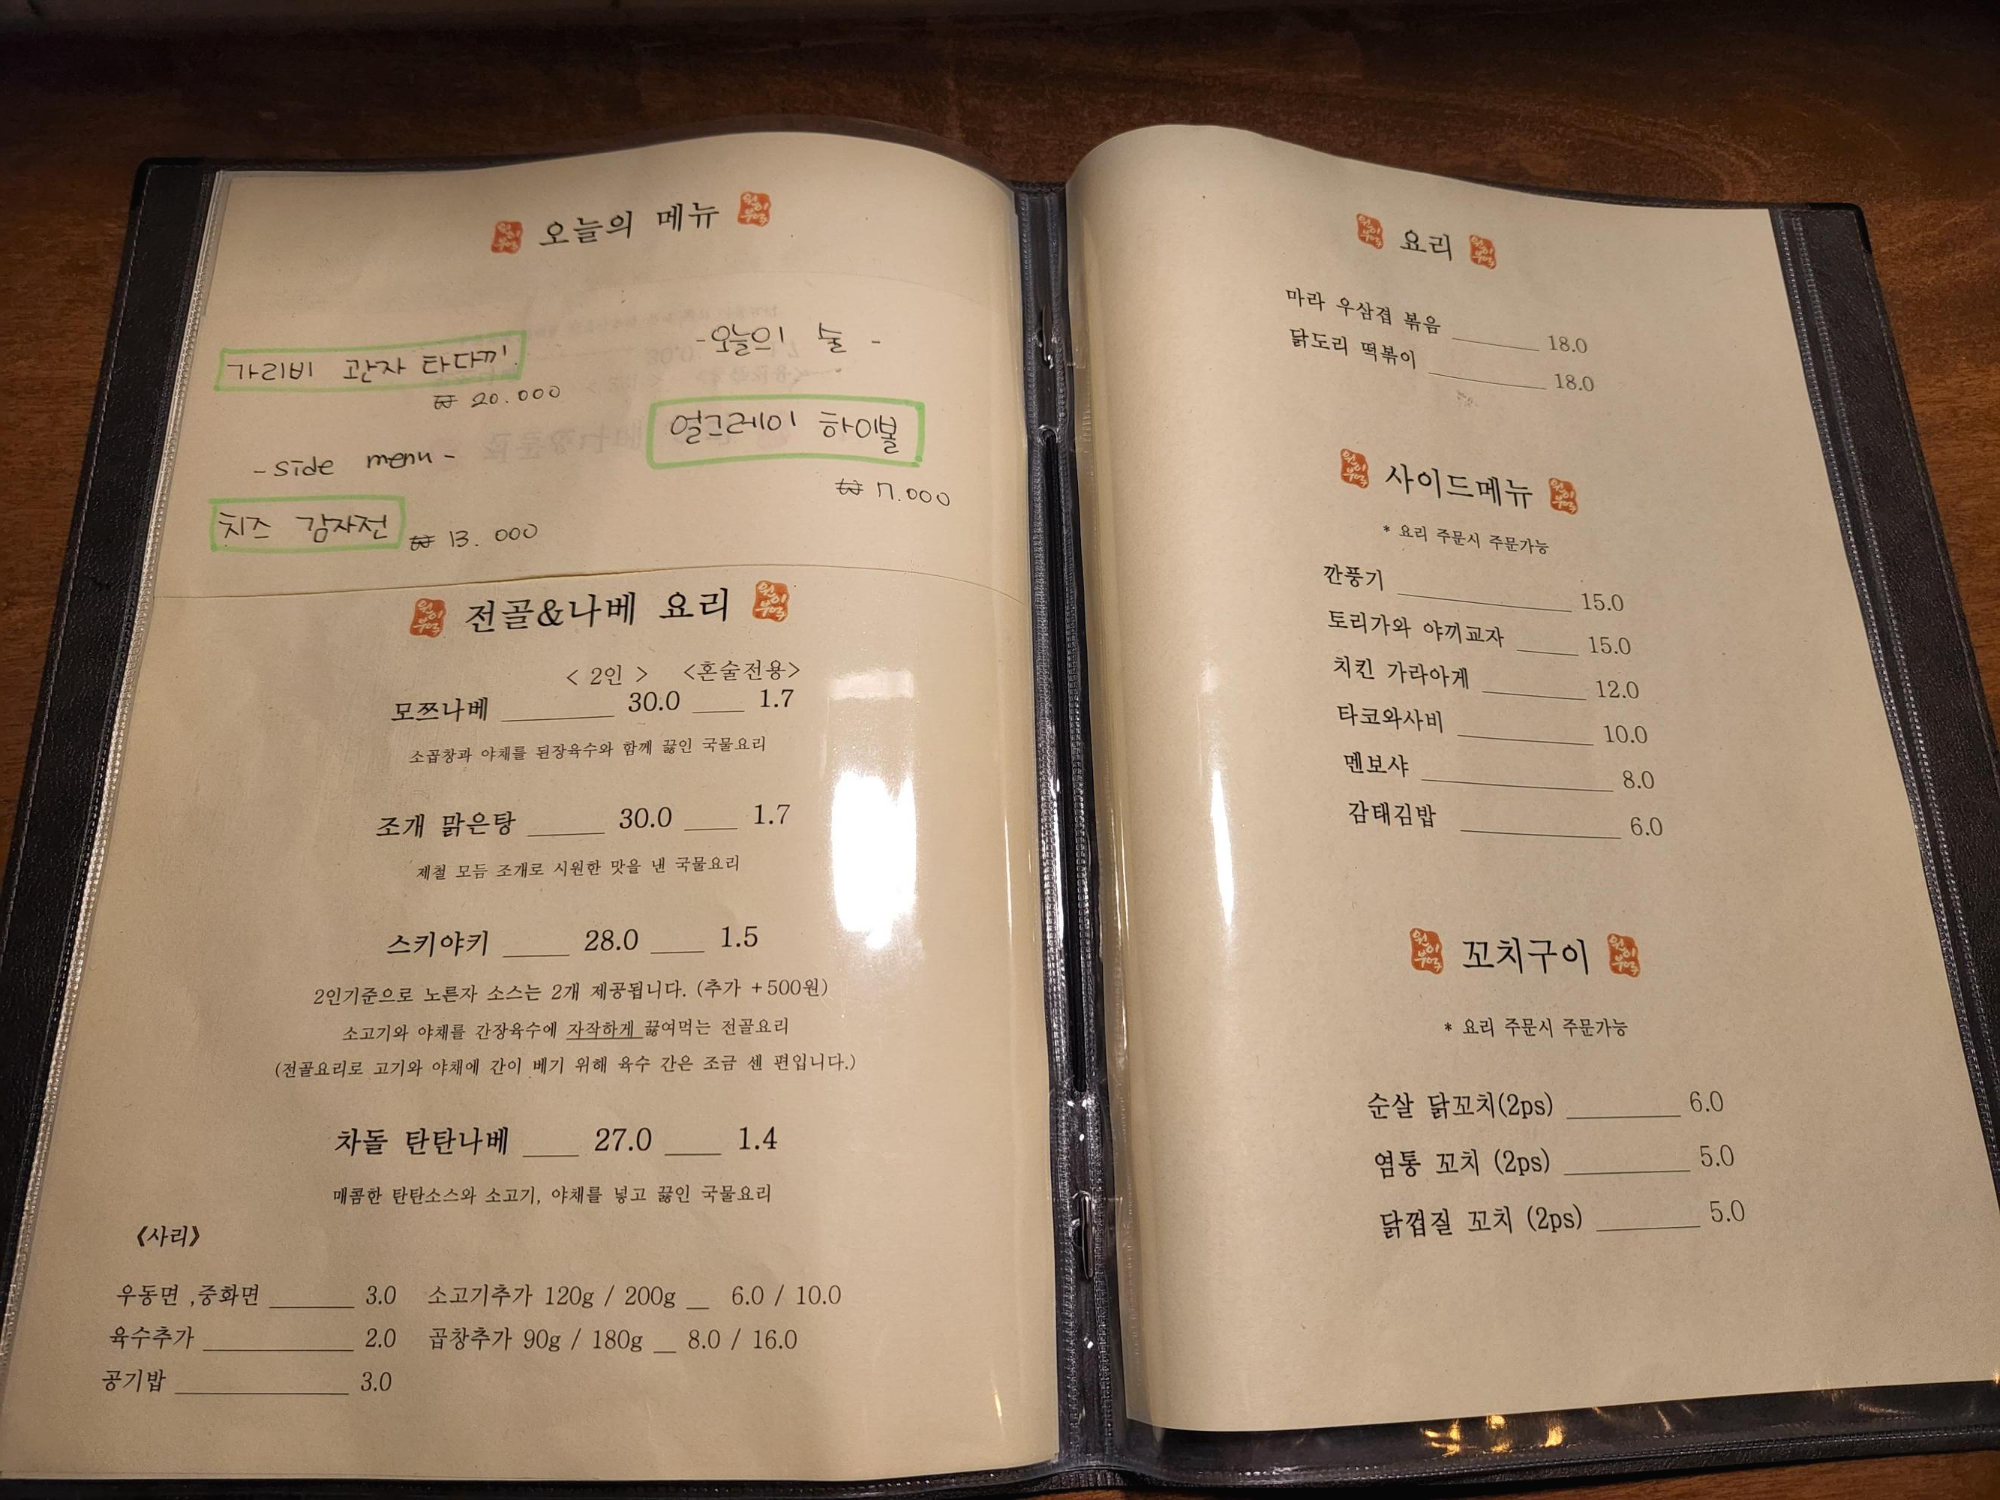 오늘의 메뉴
가리비 관자 타다끼
₩ 20.000
- side menu -
치즈 감자전
₩ 13.000
- 오늘의 술 -
얼그레이 하이볼
₩ 7.000
전골&나베 요리
< 2인 > <혼술전용>
모쯔나베 30.0 1.7
소곱창과 야채를 된장육수와 함께 끓인 국물요리
조개 맑은탕 30.0 1.7
제철 모듬 조개로 시원한 맛을 낸 국물요리
스키야키 28.0 1.5
2인기준으로 노른자 소스는 2개 제공됩니다. (추가 +500원)
소고기와 야채를 간장육수에 자작하게 끓여먹는 전골요리
(전골요리로 고기와 야채에 간이 베기 위해 육수 간은 조금 센 편입니다.)
차돌 탄탄나베 27.0 1.4
매콤한 탄탄소스와 소고기, 야채를 넣고 끓인 국물요리
《사리》
우동면 ,중화면 3.0 소고기추가 120g / 200g 6.0 / 10.0
육수추가 2.0 곱창추가 90g / 180g 8.0 / 16.0
공기밥 3.0
요리
마라 우삼겹 볶음 18.0
닭도리 떡볶이 18.0
사이드메뉴
* 요리 주문시 주문가능
깐풍기 15.0
토리가와 야끼교자 15.0
치킨 가라아게 12.0
타코와사비 10.0
멘보샤 8.0
감태김밥 6.0
꼬치구이
* 요리 주문시 주문가능
순살 닭꼬치(2ps) 6.0
염통 꼬치 (2ps) 5.0
닭껍질 꼬치 (2ps) 5.0